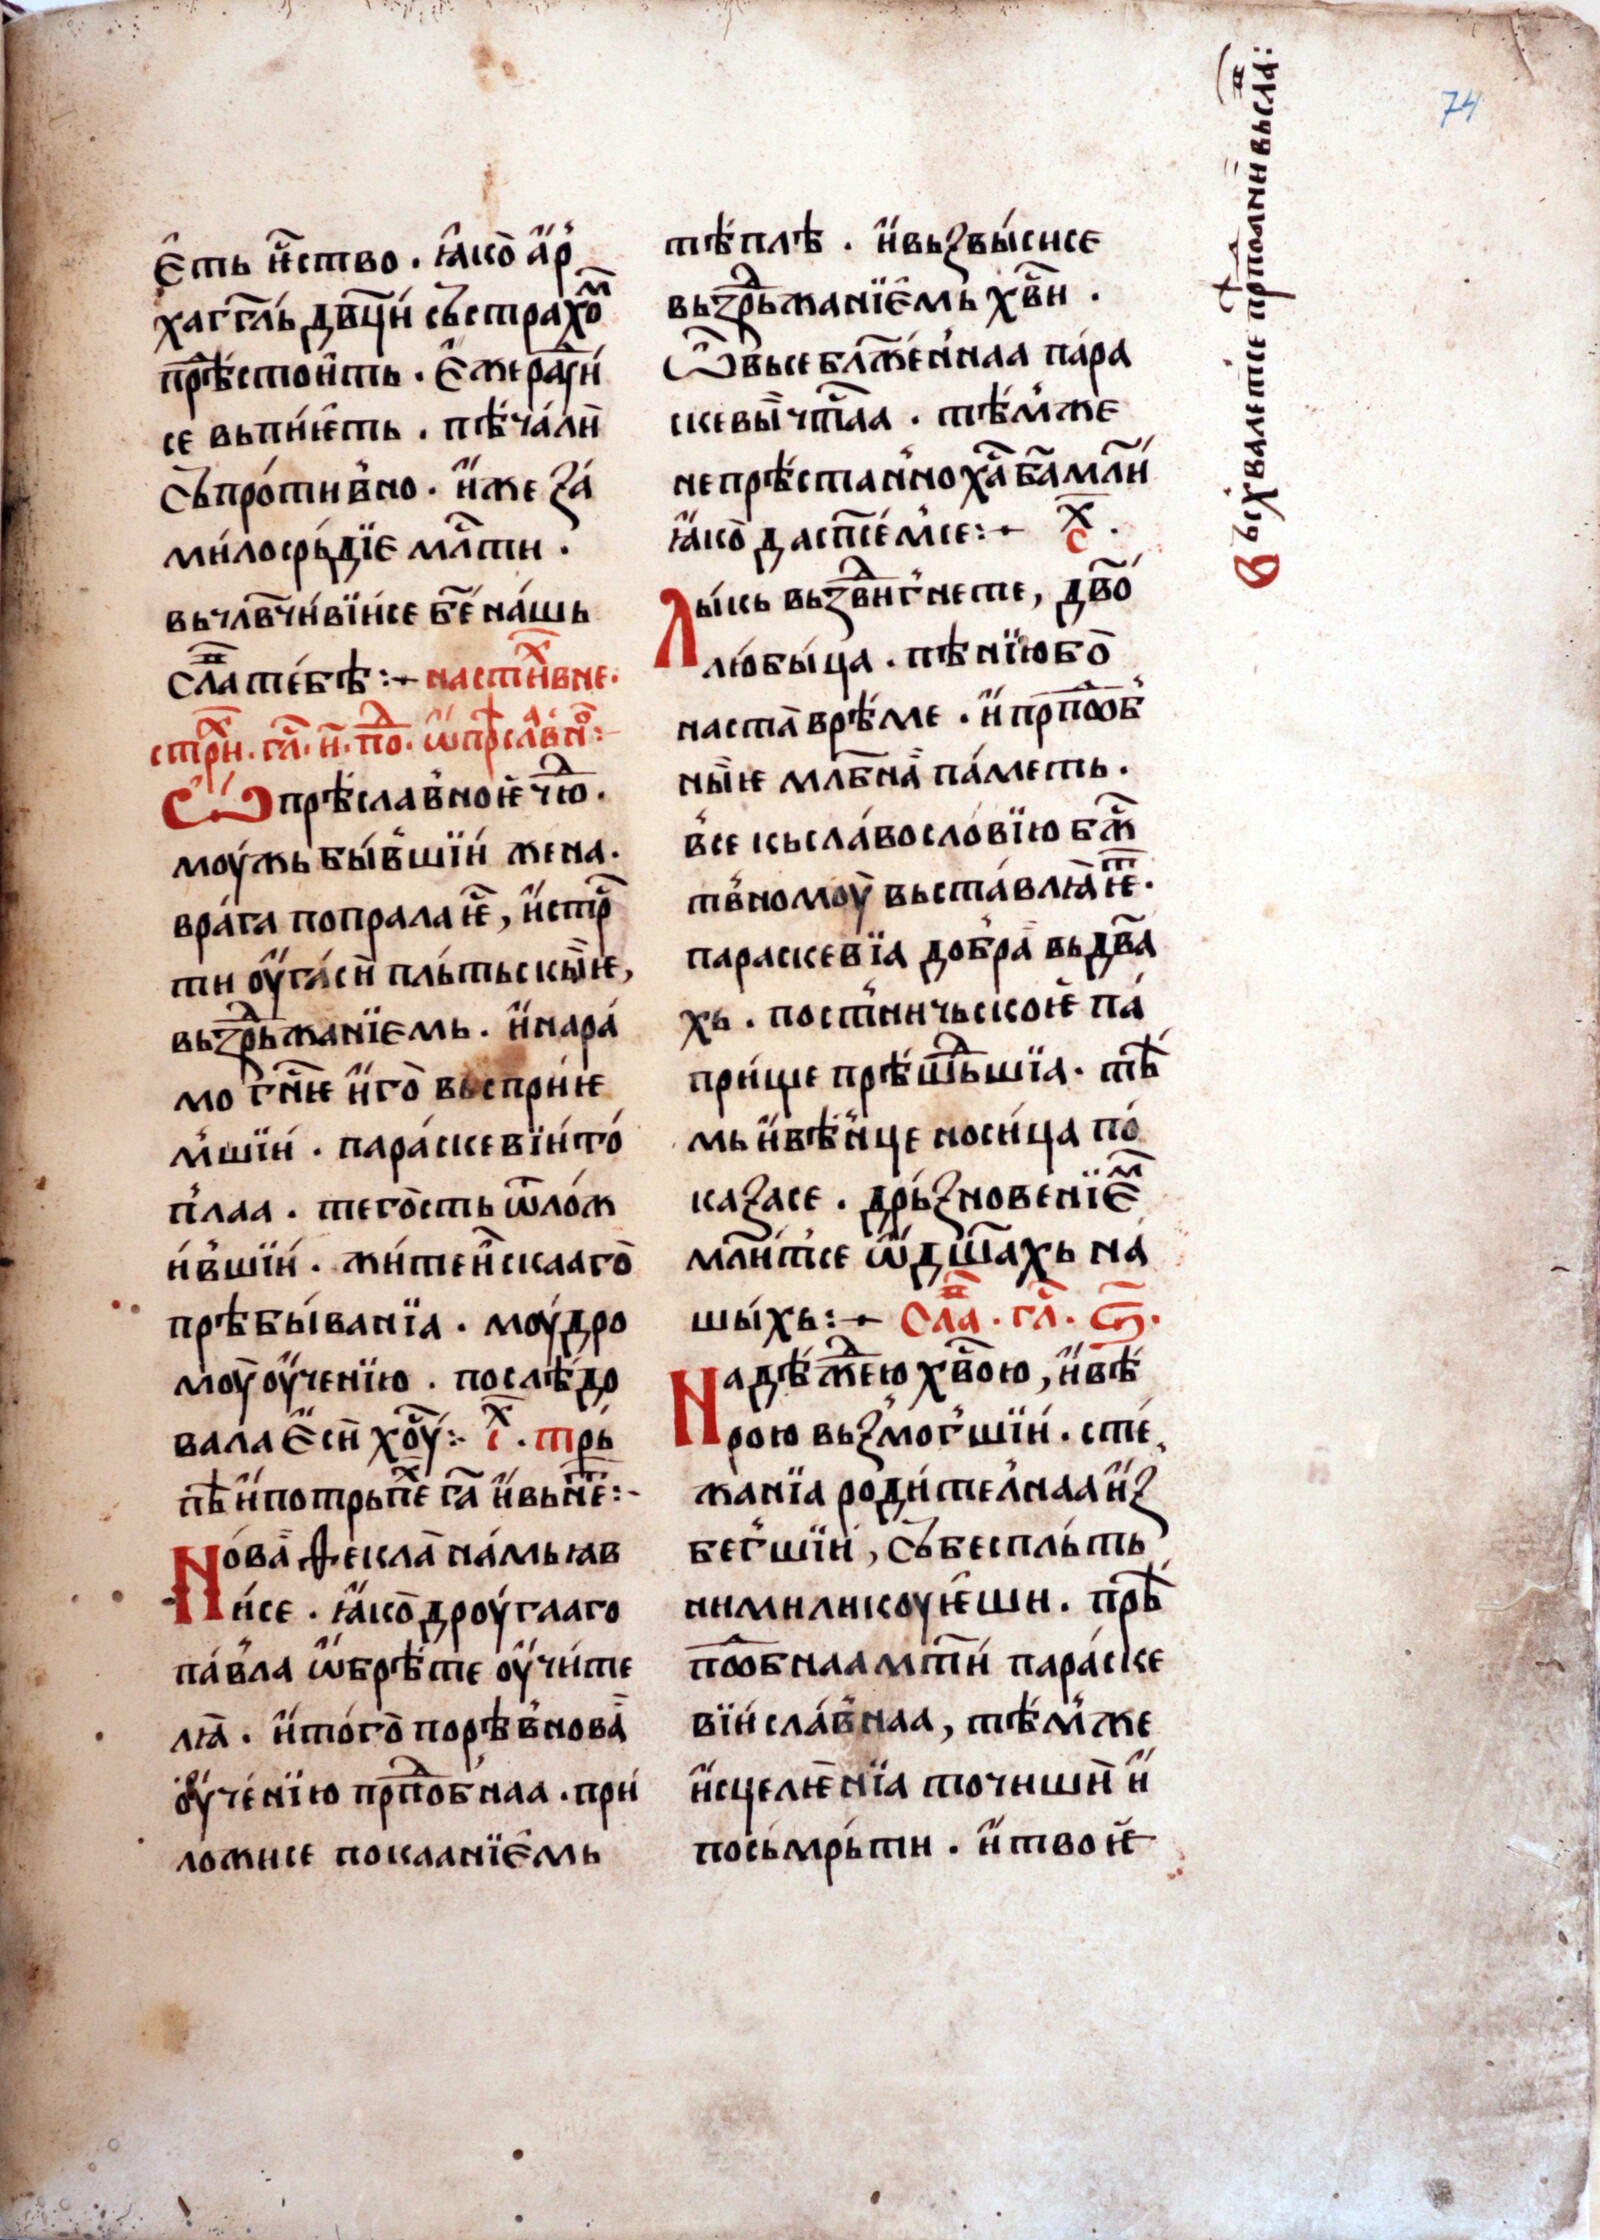 74
Ѥсть ѥ҇ство. ꙗ҆ко̀ а҆р
хаггль дв҃ци състрахо́м
прѣ́стоить. Е҆же ра҇ꙁи
се вьпїѥть. пѣчални
Съпроти́вно. и҆же ꙁа
ми́лосрьдїе млⷭ҇ти.
вьчлв҃чи́вїисе бе҃ на́шь
сла҇ те́бѣ:~ настиⷯвне.
стрⷯи. гл҃. и҃. поⷣ. ѡ҆ прⷭѣслаⷡноⷷ:~
Ѽ прѣ́славноѥ чюⷣ.
моужь бы́вшїи жена.
врага попралаѥⷭ, и҆стрⷭ
ти оу҆га́си пль́тьскыѥ,
вьꙁⷣрьжанїемь. и҆нара́
мо гн҃ѥ и҆го̀ вьсприѥ
мшїи. пара́скевїи то́
плаа. тего́сть ѿло́ж
и́вшїи. жи́теискааго̀
прѣбы́ванїа. моу́дро
моу оу҆ченїю. послѣдо
вала Е҆си хоу҃:~ сⷯ. трь
пѣ и҆потрьпеⷯ га҃ и҆вьнⷨе:~
Нова̀ Ѳекла на́мь ꙗв
и́се. ꙗ҆ко̀ дроугааго
па́вла ѡ҆брѣ́те оу҆чи́те
лꙗ. и҆то́го̀ порѣвнова
оу҆че́нїю прпⷣобнаа. при
ложисе покаанїемь
тѣ́плѣ. и҆вьꙁвы́сисе
вьꙁⷣрьжанїемь хв҃и.
Ѽвьсе блж҃еннаа па́ра
скевы́ чтⷭ҇аа. тѣ́мже
непрѣ́станно ха҃ ба҃ мл҃и
ꙗ҆ко̀ да сп҃се́мсе:~ сⷯ.
Лы́кь вьꙁⷣви́гнете, дв҃о
лю́бьі́ца. пѣнїю бо̀
наста врѣме. и҆ прпⷣоб
ны́ѥ млб҃на па́меть.
все кьсла́восло́вїю бжⷭ
твномоу вьста́влꙗѥⷮ.
параскевїа добра̀ вьдв҃а
хь. постничьскоѥ па́
при́ще прѣшⷣьшїа. тѣ
мь и҆вѣнце носи́ца по́
каꙁасе. дрьꙁновенїеⷨ
мл҃итсе ѡ҆дш҃ахь на́
шы́хь:~ Сла҇. гл҃. ѕ҃.
Надѣжⷣею хв҃ою, и҆вѣ́
рою вьꙁмогшїи. сте
жанїа роди́телнаа и҆ꙁ
бегшїи, съ бесплъ́ть
ними ликоуѥши. прѣ
поⷣбнаа мт҃и пара́ске
вїи сла́внаа, тѣмже
и҆сцелѥнїа точиши и҆
посьмрьти. и҆ твоѥ
Всхвалетⷭе прⷣполнивьсла҇: